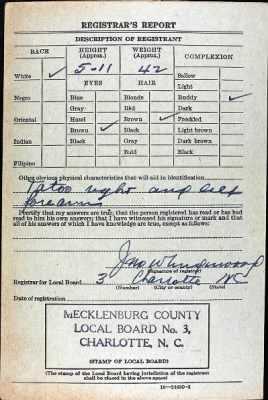 REGISTRAR'S REPORT
DESCRIPTION OF REGISTRANT
RACE
HEIGHT (Approx.)
WEIGHT (Approx.)
COMPLEXION
White ✓
5-11
42
Sallow
Light
EYES
HAIR
Ruddy ✓
Negro
Blue
Blonde
Dark
Gray
Red
Freckled
Oriental
Hazel
Brown ✓
Light brown
Brown ✓
Black
Dark brown
Indian
Black
Gray
Black
Bald
Filipino
Other obvious physical characteristics that will aid in identification
Tatoo right and left
forearms
I certify that my answers are true; that the person registered has read or has had
read to him his own answers; that I have witnessed his signature or mark and that
all of his answers of which I have knowledge are true, except as follows:
Jno W Underwood
(Signature of registrar)
Registrar for Local Board 3 Charlotte NC
(Number) (City or county) (State)
Date of registration
MECKLENBURG COUNTY
LOCAL BOARD No. 3,
CHARLOTTE, N. C.
(STAMP OF LOCAL BOARD)
(The stamp of the Local Board having jurisdiction of the registrant
shall be placed in the above space)